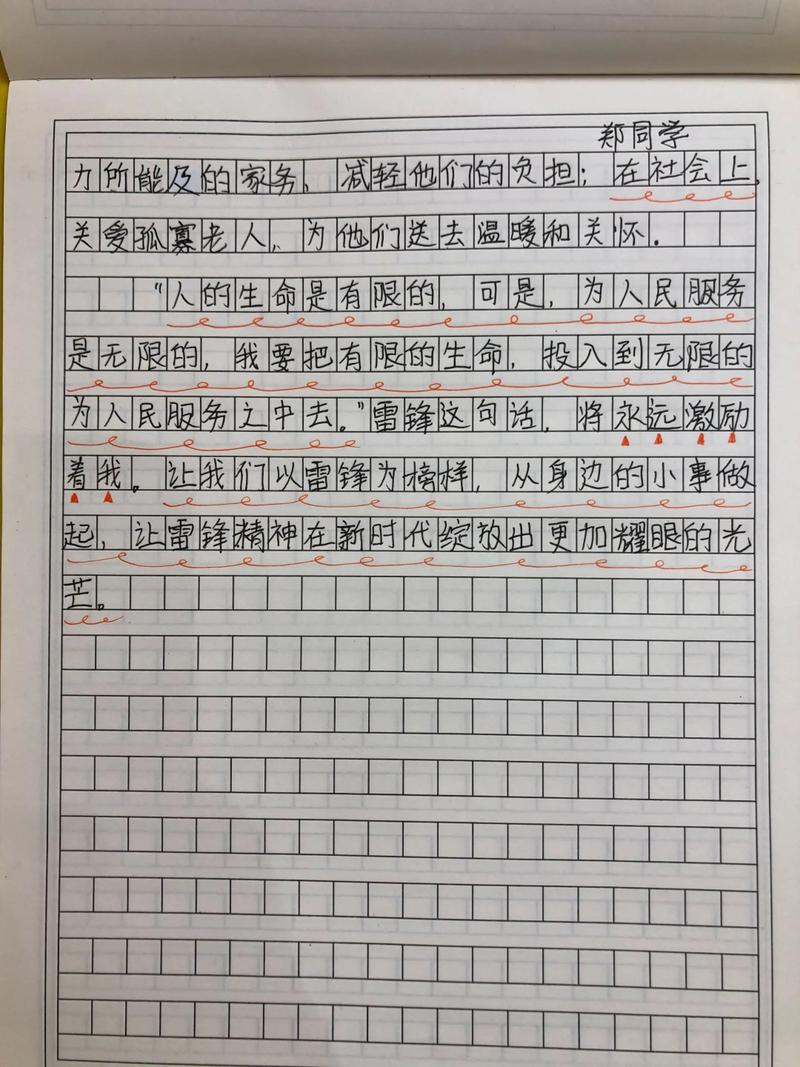 郑同学
力所能及的家务，减轻他们的负担；在社会上，
关爱孤寡老人，为他们送去温暖和关怀.
“人的生命是有限的，可是，为人民服务
是无限的，我要把有限的生命，投入到无限的
为人民服务之中去。”雷锋这句话，将永远激励
着我。让我们以雷锋为榜样，从身边的小事做
起，让雷锋精神在新时代绽放出更加耀眼的光
芒。